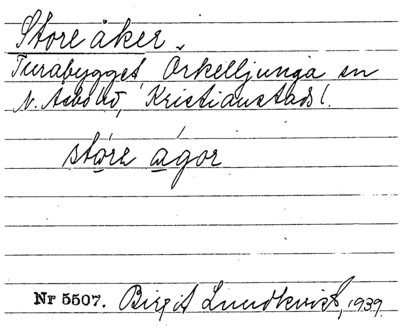 Store åker
Turabygget, Örkelljunga sn
N. Åsbo hd, Kristianstads l.
stóre ágor
Nr 5507. Birgit Lundkvist, 1939.